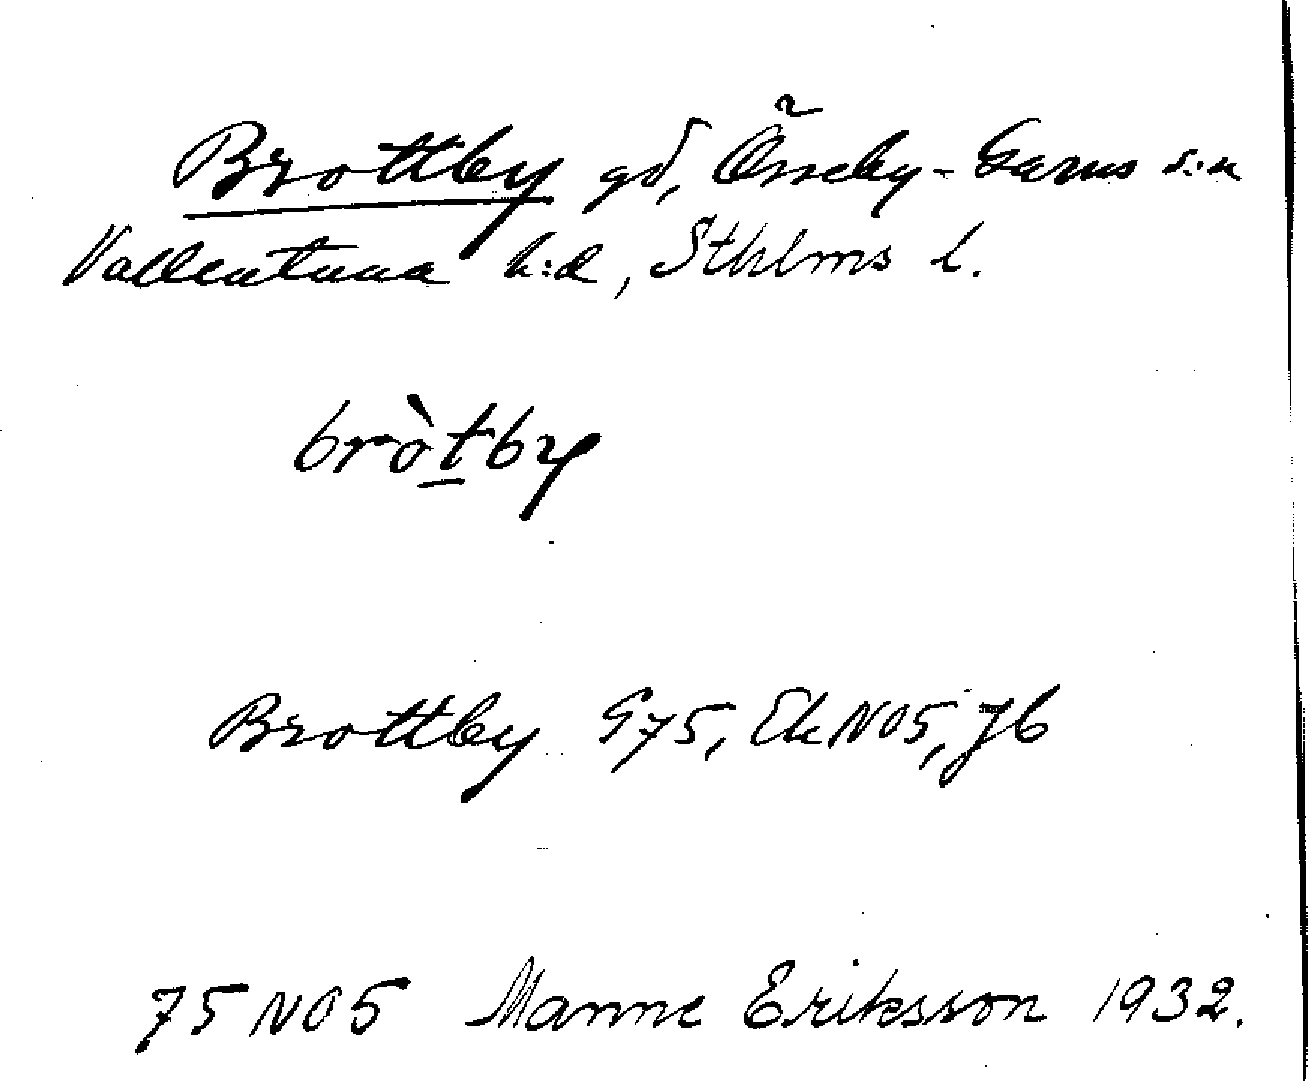 Brottby gd, Össeby-Garns s:n
Vallentuna h:d, Sthlms l.
bròt̲by
Brottby G75, Ek NO5, Jb
75 NO5 Manne Eriksson 1932.